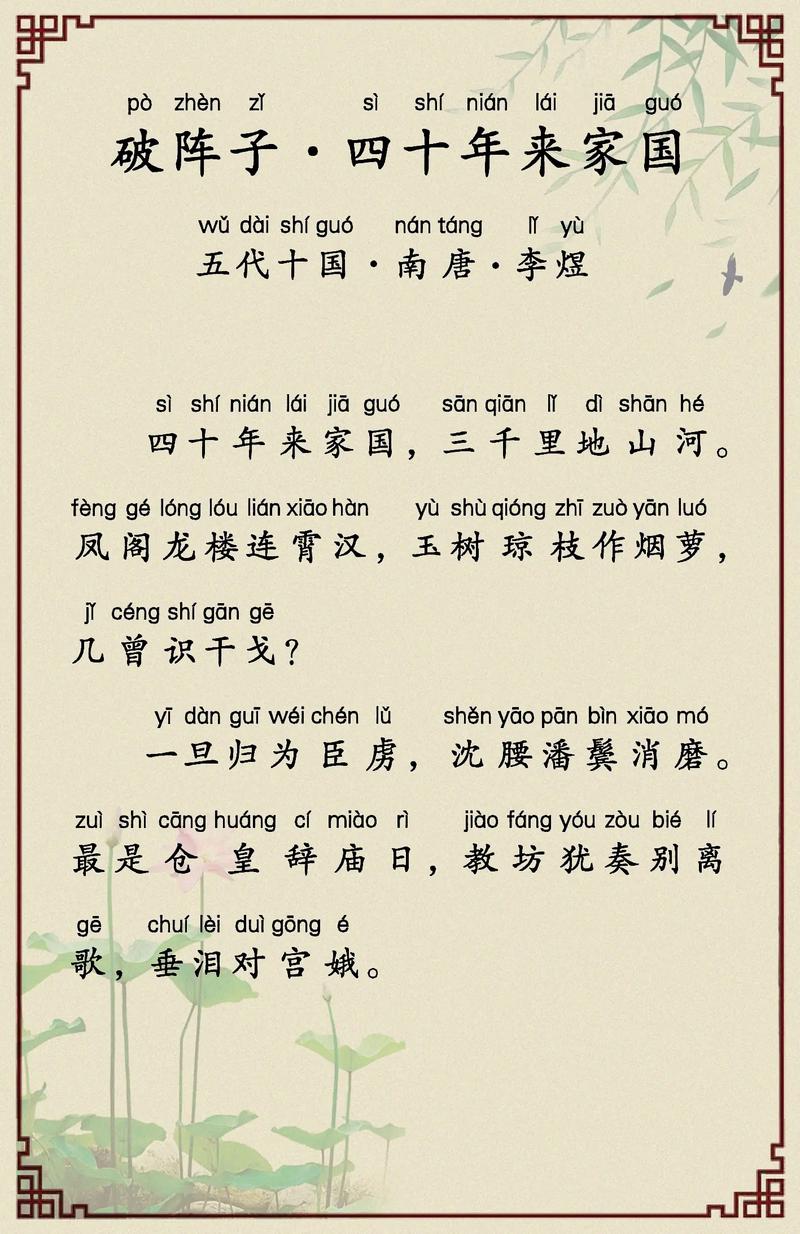 pò zhèn zǐ sì shí nián lái jiā guó
破阵子·四十年来家国
wǔ dài shí guó nán táng lǐ yù
五代十国·南唐·李煜
sì shí nián lái jiā guó sān qiān lǐ dì shān hé
四十年来家国，三千里地山河。
fèng gé lóng lóu lián xiāo hàn yù shù qióng zhī zuò yān luó
凤阁龙楼连霄汉，玉树琼枝作烟萝，
jǐ céng shí gān gē
几曾识干戈？
yī dàn guī wéi chén lǔ shěn yāo pān bìn xiāo mó
一旦归为臣虏，沈腰潘鬓消磨。
zuì shì cāng huáng cí miào rì jiào fáng yóu zòu bié lí
最是仓皇辞庙日，教坊犹奏别离
gē chuí lèi duì gōng é
歌，垂泪对宫娥。